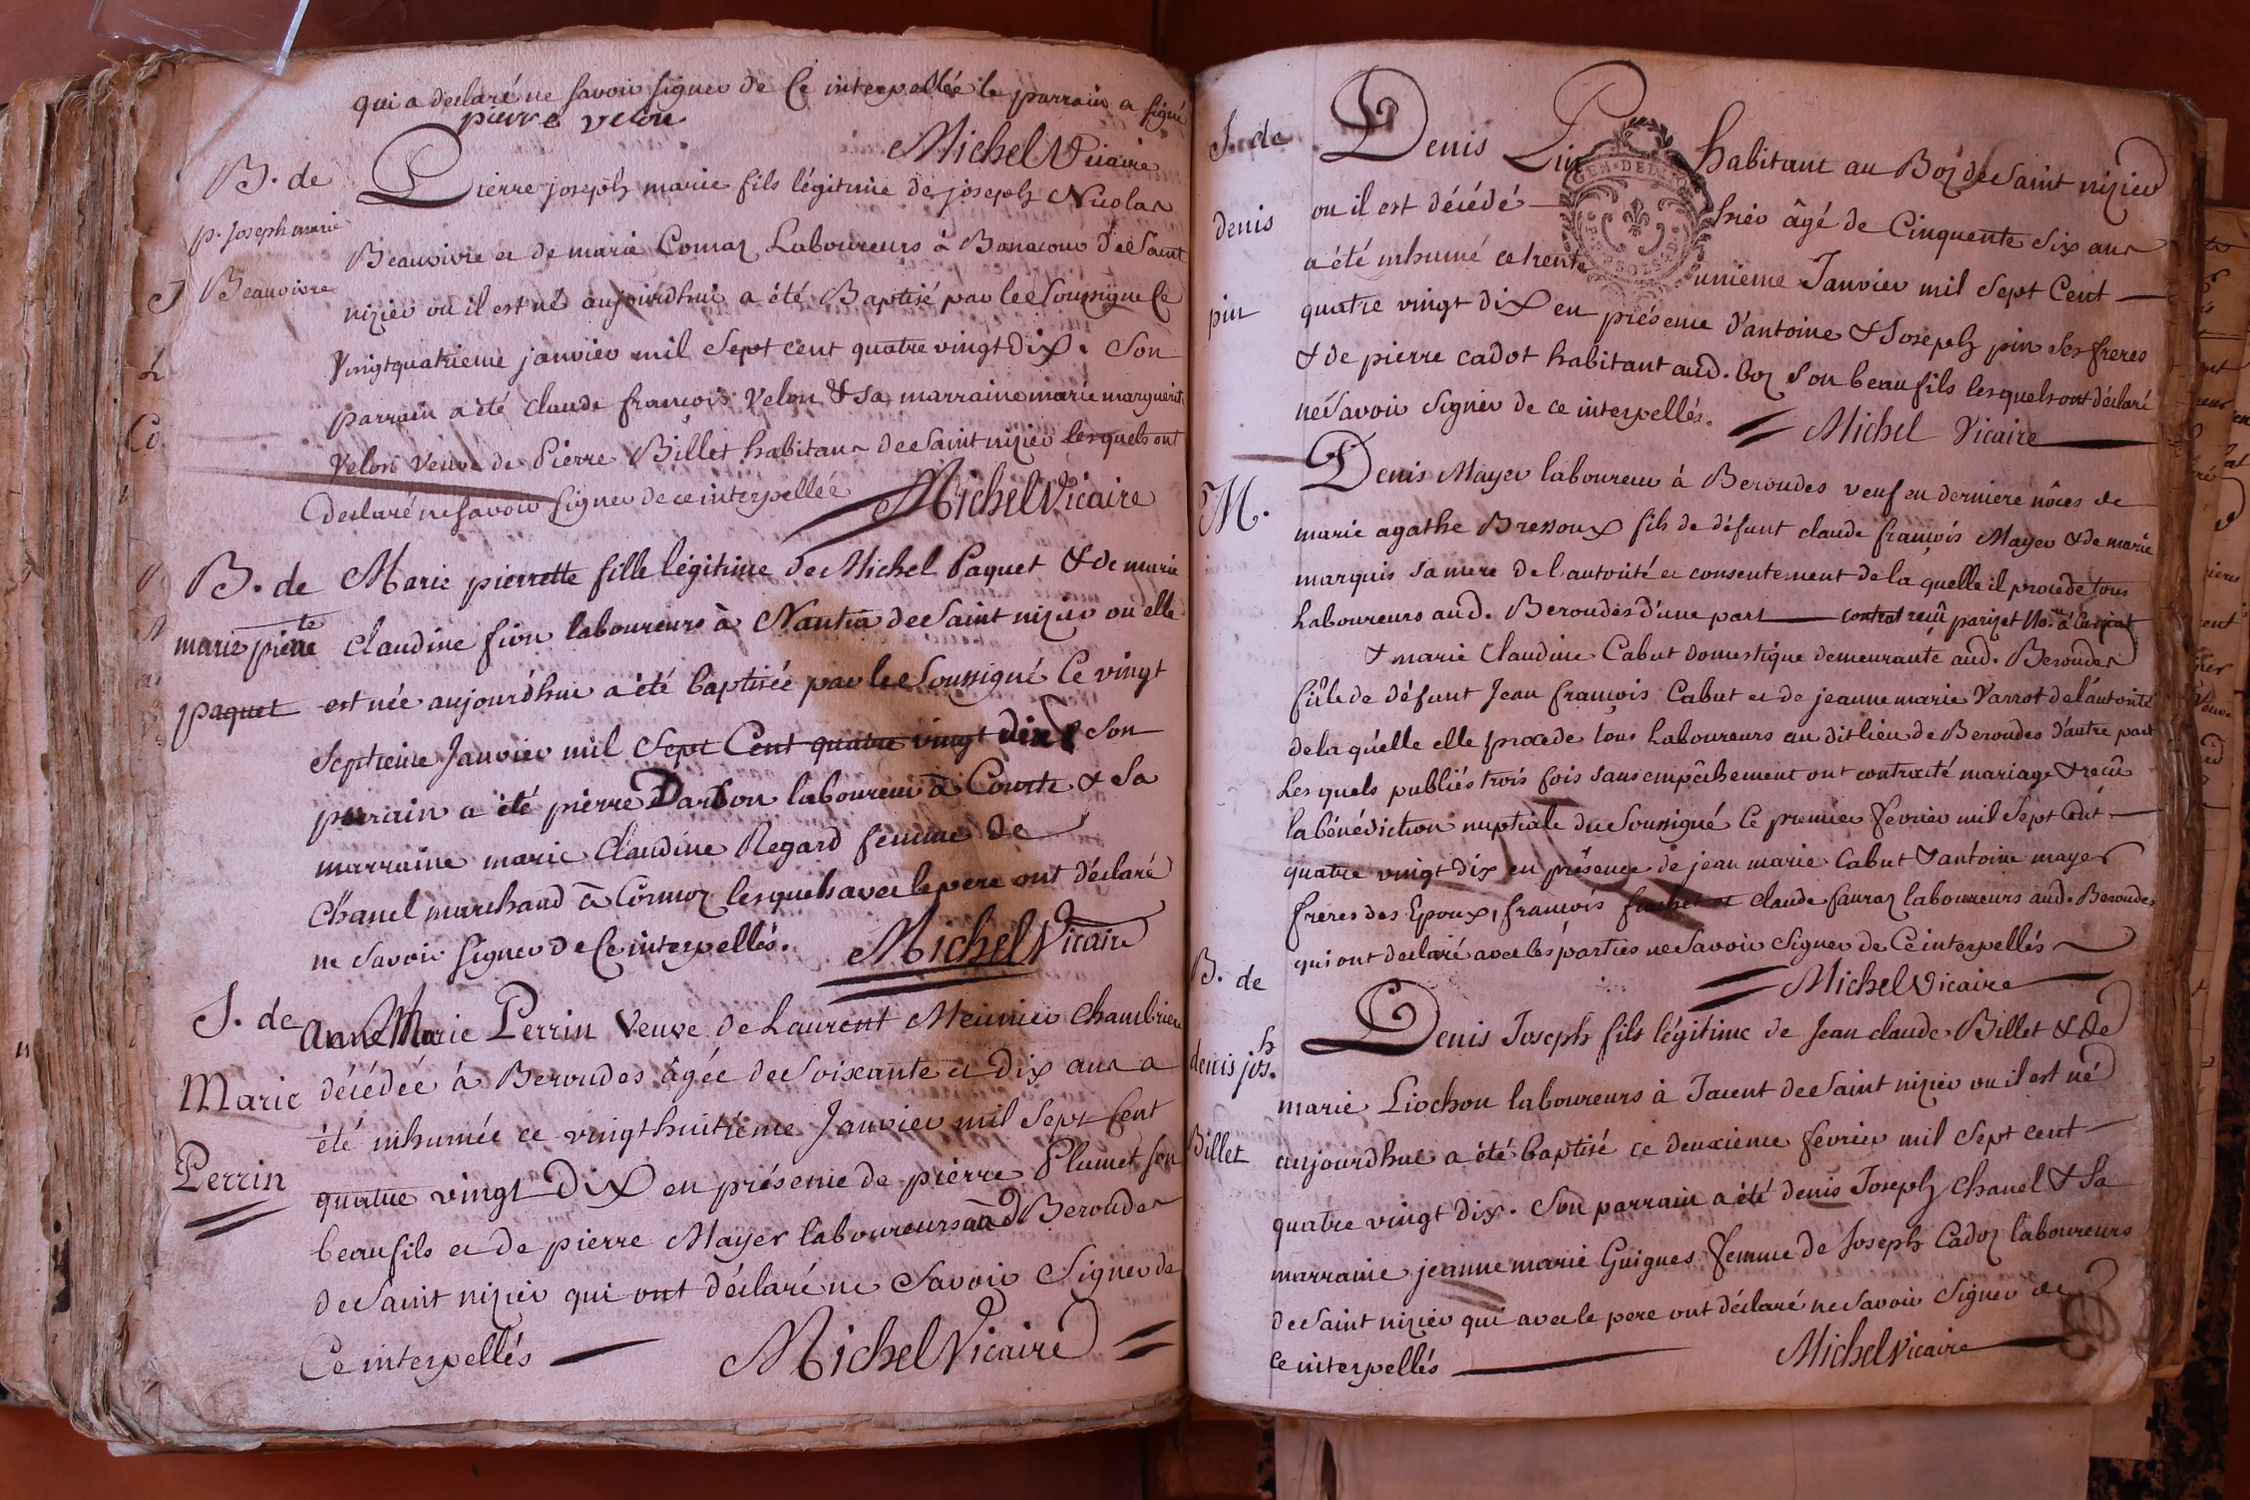 qui a declaré ne savoir signer de Ce interpellée le parrain a signé
pierre velon
Michel Vicaire
B. de
p. Joseph marie
Beauvivre
Pierre joseph marie fils légitime de joseph Nicolas
Beauvivre et de marie Comaz Laboureurs à Bonacour de Saint
nizier ou il est né aujourdhui a été Baptisé par le Soussigné Ce
Vingtquatrieme janvier mil Sept cent quatre vingt Dix. Son
parrain a été Claude françois Velon & sa marraine marie marguerite
Velon Veuve de Pierre Billet habitans de Saint nizier lesquels ont
declaré ne savoir signer de ce interpellée
Michel Vicaire
B. de
marie pierrte
paquet
Marie pierrette fille légitime de Michel Paquet & de marie
Claudine fion laboureurs à Nantia de Saint nizier ou elle
est née aujourdhui a été baptisée par le Soussigné Ce vingt
Septieme Janvier mil Sept Cent quatre vingt dix Son
parrain a été pierre Darbon laboureur à Courte & Sa
marraine marie Claudine Regard femme de
Chanel marchand à Cormoz lesquels avec le pere ont déclaré
ne Savoir signer de Ce interpellés.
Michel Vicaire
S. de
Marie
Perrin
Anne Marie Perrin Veuve de Laurent Meunier Chambriere
décédée à Beroudes âgée de Soixante et Dix ans a
été inhumée ce vingthuitiéme Janvier mil Sept Cent
quatre vingt Dix en présence de pierre Plumet son
beaufils et de pierre Mayer laboureurs aud Beroudes
de Saint nizier qui ont déclaré ne Savoir Signer de
Ce interpellés
Michel Vicaire
S. de
denis
pin
Denis Pin habitant au Boz de Saint nizier
ou il est décédé hier âgé de Cinquante Six ans
a été inhumé ce trente unieme Janvier mil Sept Cent
quatre vingt dix en présence d'antoine & Joseph pin ses freres
& de pierre cadot habitant aud. boz son beau fils lesquels ont déclaré
ne Savoir Signer de ce interpellés.
Michel Vicaire
M.
Denis Mayer laboureur à Beroudes veuf en derniere nôces de
marie agathe Bressoux fils de défunt claude françois Mayer & de marie
marquis sa mere de l'autorité et consentement de la quelle il procede tous
Laboureurs aud. Beroudes d'une part contrat reçû parizet No.re à
& marie Claudine Cabut domestique demeurante aud. Beroudes
fille de défunt Jean françois Cabut et de jeanne marie Varrot de l'autorité
de la quelle elle procede tous Laboureurs au dit lieu de Beroudes d'autre part
Les quels publiés trois fois sans empêchement ont contracté mariage & reçû
la bénédiction nuptiale du Soussigné Ce premier fevrier mil Sept Cent
quatre vingt dix en présence de jean marie Cabut & antoine mayer
freres des Epoux, françois et claude fauraz laboureurs aud. Beroudes
qui ont declaré avec les parties ne Savoir Signer de Ce interpellés
Michel Vicaire
B. de
denis jos.h
Billet
Denis Joseph fils légitime de Jean claude Billet & de
marie Liochon laboureurs à Jacent de Saint nizier ou il est né
aujourdhui a été baptisé ce deuxieme fevrier mil Sept cent
quatre vingt dix. Son parrain a été denis Joseph Chanel & Sa
marraine jeanne marie Guigues femme de Joseph Cadoz laboureurs
de Saint nizier qui avec le pere ont déclaré ne Savoir Signer de
ce interpellés
Michel Vicaire